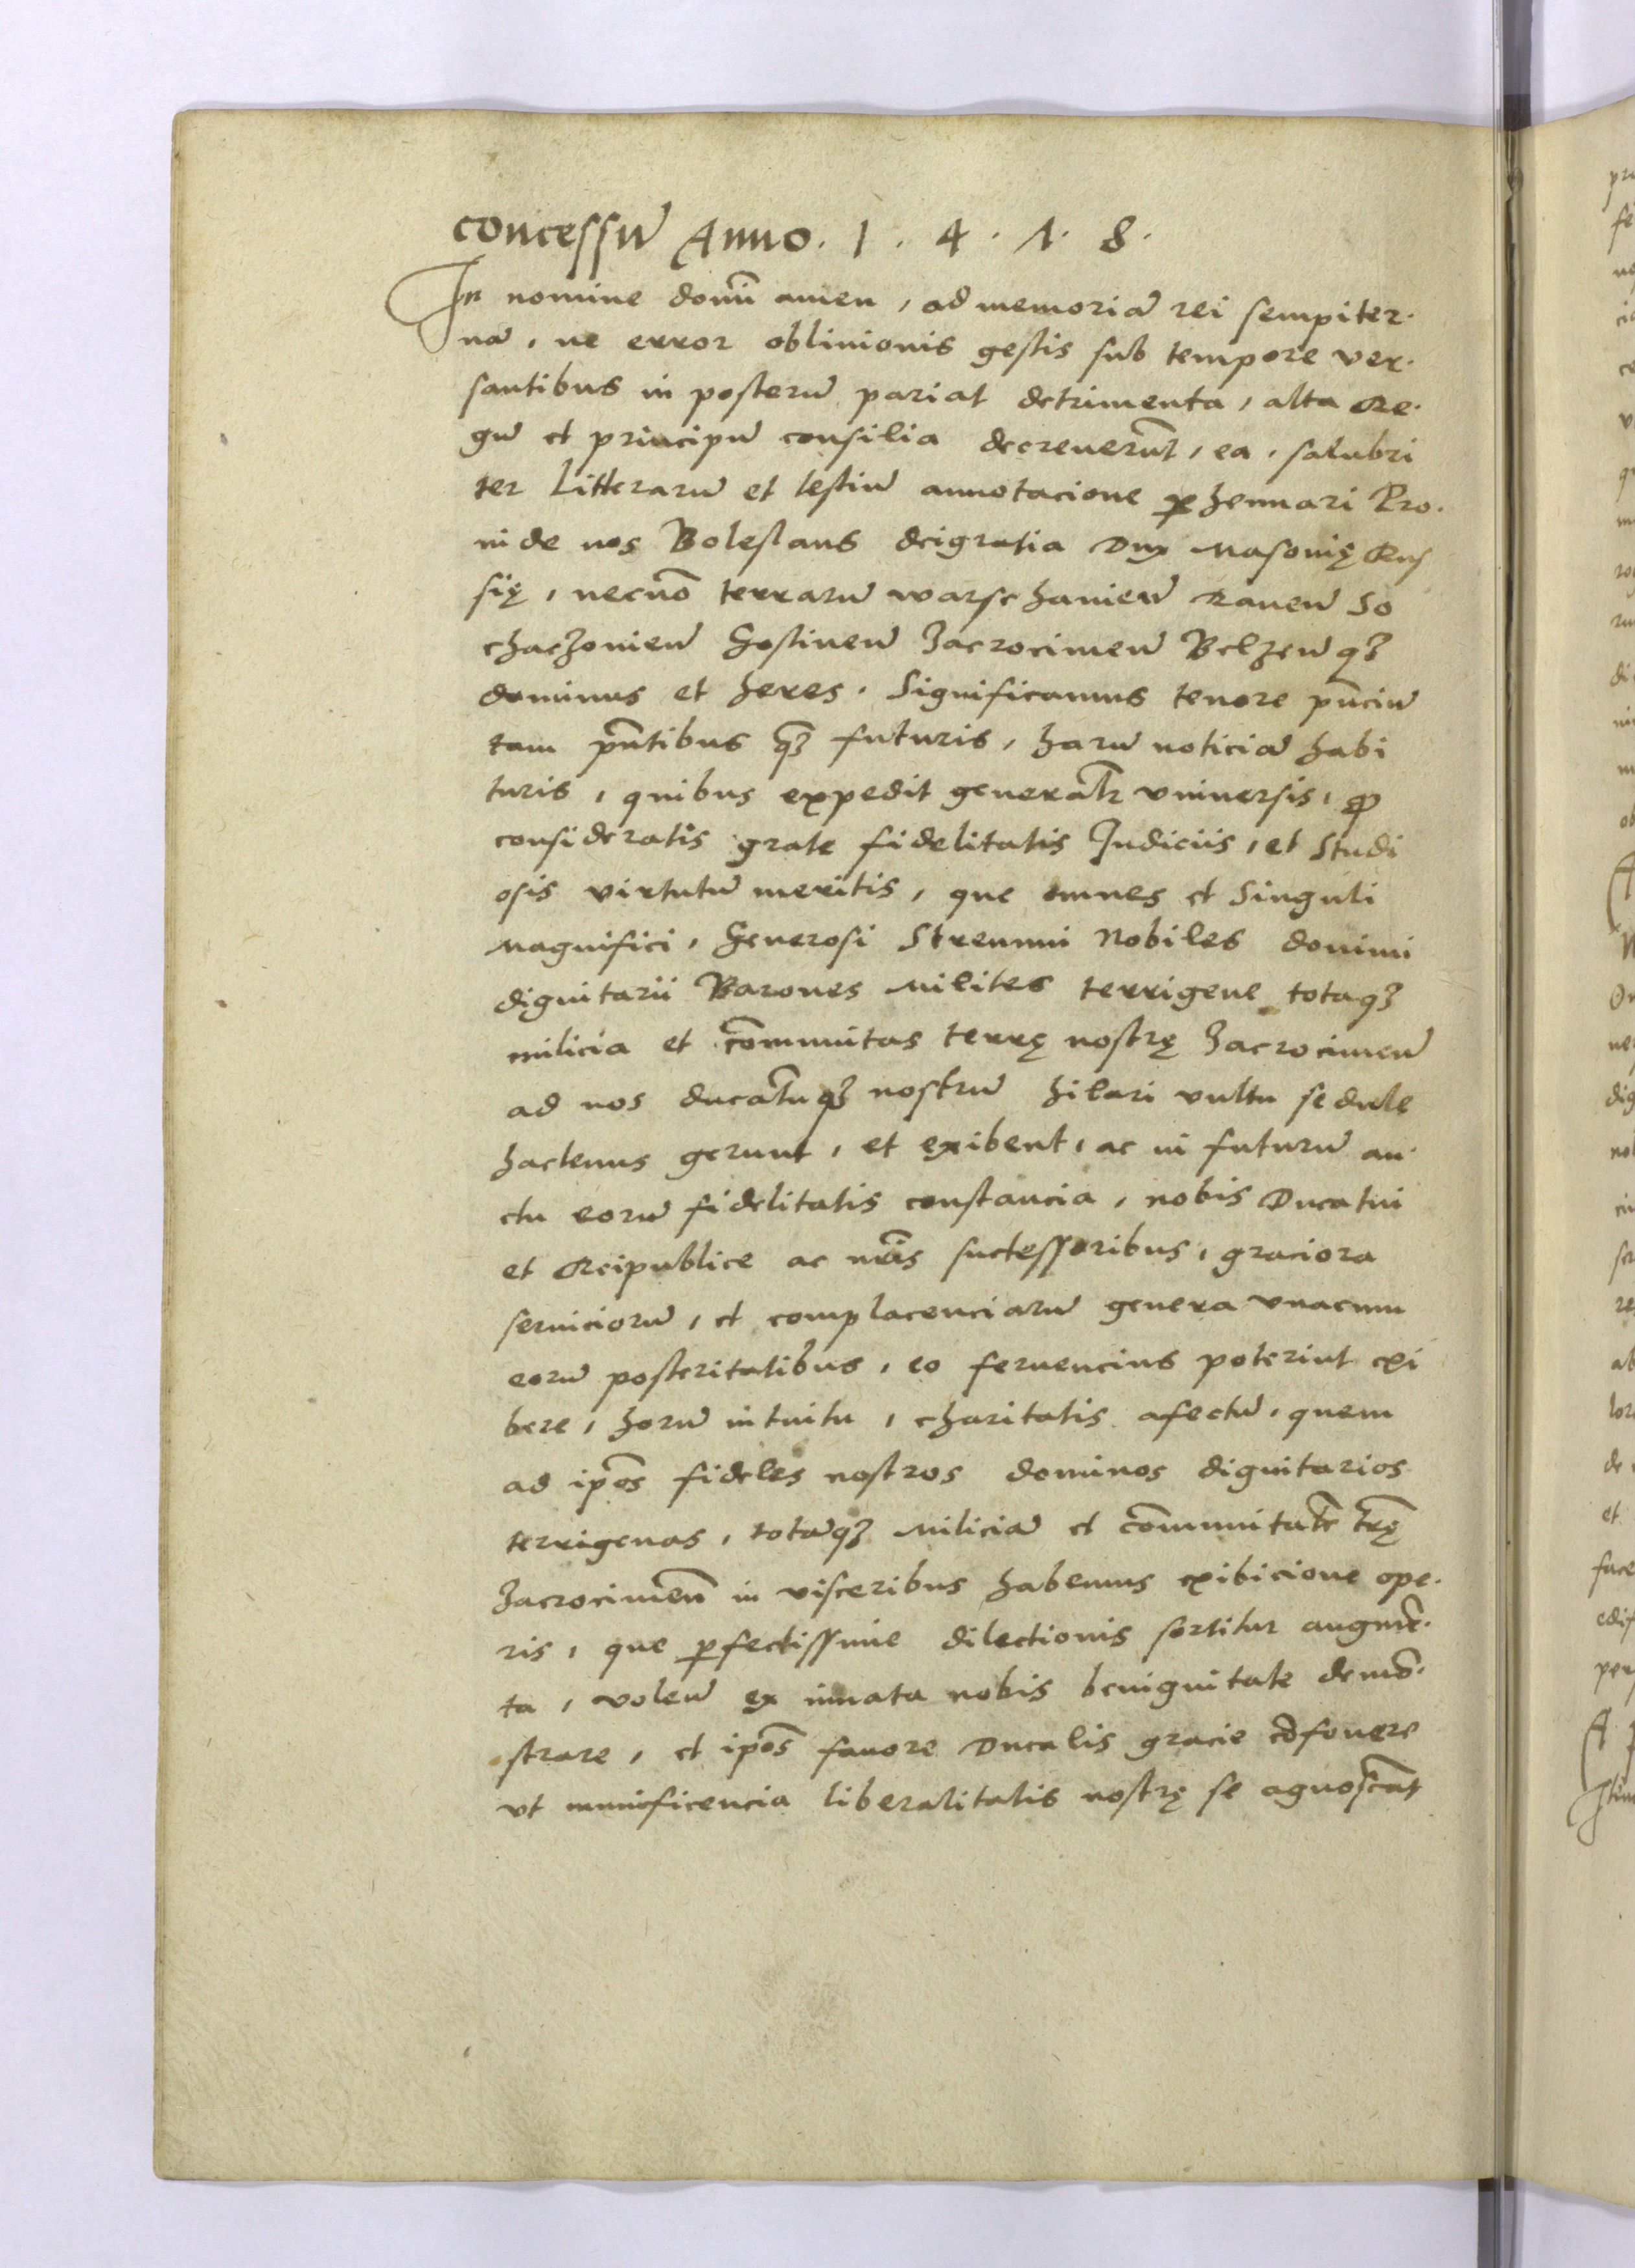 concessū Anno . 1 . 4 . 1 . 8 .
In nomine domī amen , ad memoriā rei sempiter.
nā , ne error obliuionis gestis sub tempore ver.
santibus in posterū pariat detrimenta , alta Re.
gū et principū consilia decreuerūt , ea , salubri
ter Litterarū et testiū annotacione ꝑhennari Pro.
inde nos Boleslaus deigratia Dux Masouię Rus
się , necnō terrarū warschauieñ Raueñ So
chaczouieñ Gostineñ Zacrocimeñ Belzeñ qȝ
dominus et heres . Significamus tenore pñciū
tam pñtibus qȝ̄ futuris , harū noticiā habi
turis , quibus expedit generatr̄ vniuersis , ꝓ
consideratis grate fidelitatis Judiciis , et Studi
osis virtutū meritis , que omnes et Singuli
Magnifici , Generosi Strenuui Nobiles domini
dignitarii Barones Milites terrigene totaqȝ
milicia et cōmunitas terrę nostrę Zacrocimeñ
ad nos ducatūqȝ nostrū hilari vultu sedulę
hactenus gerunt , et exibent , ac in futurū au.
ctu eorū fidelitatis constancia , nobis Ducatui
et Reipublice ac nr̄is successoribus , graciora
seruiciorū , et complacenciarū genera vnacum
eorū posteritatibus , eo feruencius poterint exi
bere , horū intuitu , charitatis afectū , quem
ad ip̄os fideles nostros dominos dignitarios
terrigenas , totāqȝ Miliciā et cōmunitatē tr̄ę
Zacrocimeñ in visceribus habemus exibicione ope.
ris , que ꝑfectissime dilectionis sortitur augmē.
ta , voleñ ex innata nobis benignitate demō.
strare , et ip̄os fauore Ducalis gracie cōfouere
vt munificencia liberalitatis nostrę se agnoscāt